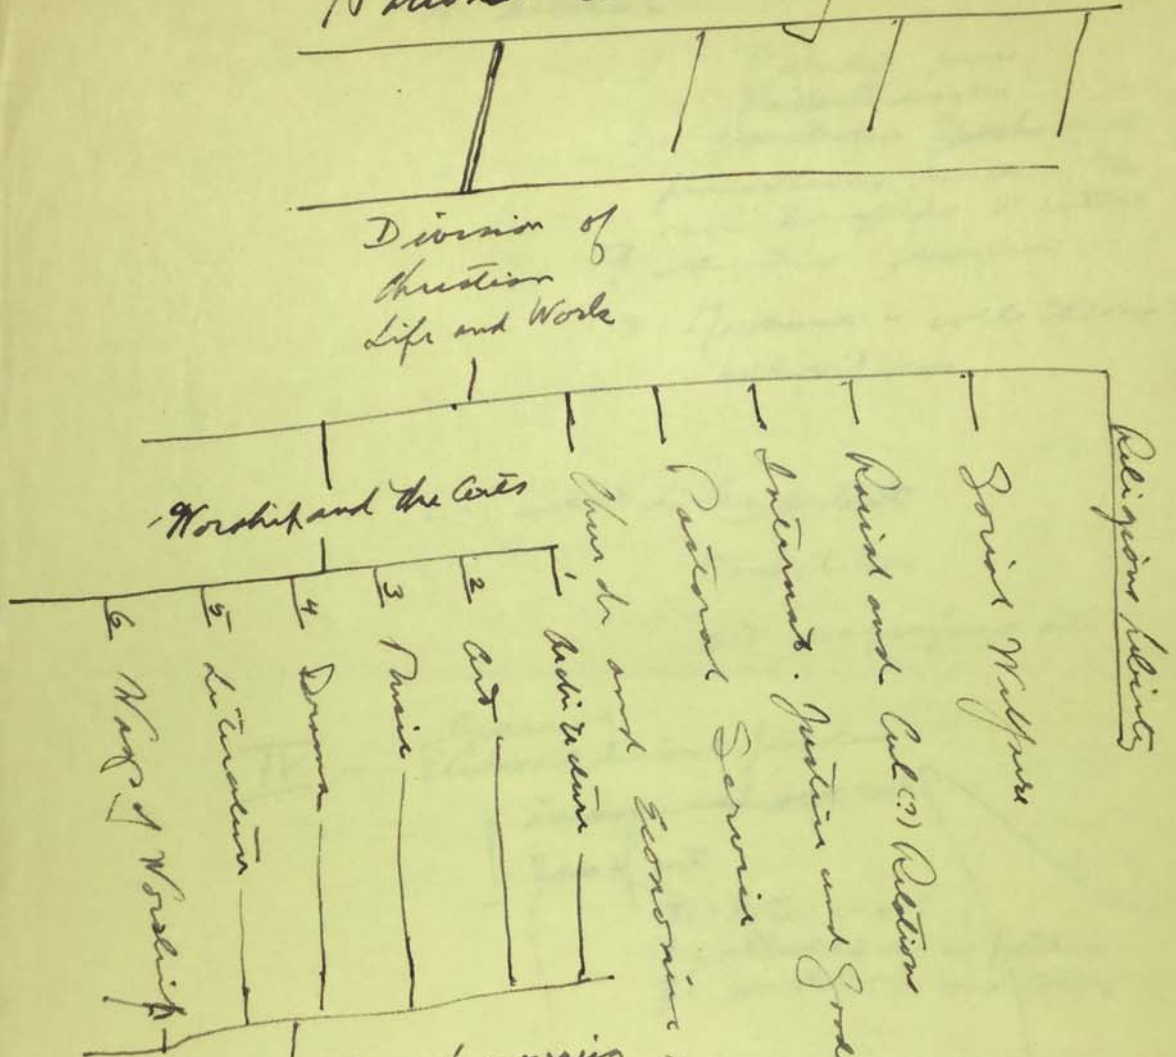 Division of
Christian
Life and Work
Worship and the Arts
1 Architecture
2 Art
3 Music
4 Drama
5 Literature
6 Ways of Worship
Church and Economic
Pastoral Service
Internat. Justice and Good
Racial and Cul (?) Relation
Social Welfare
Religious Liberty